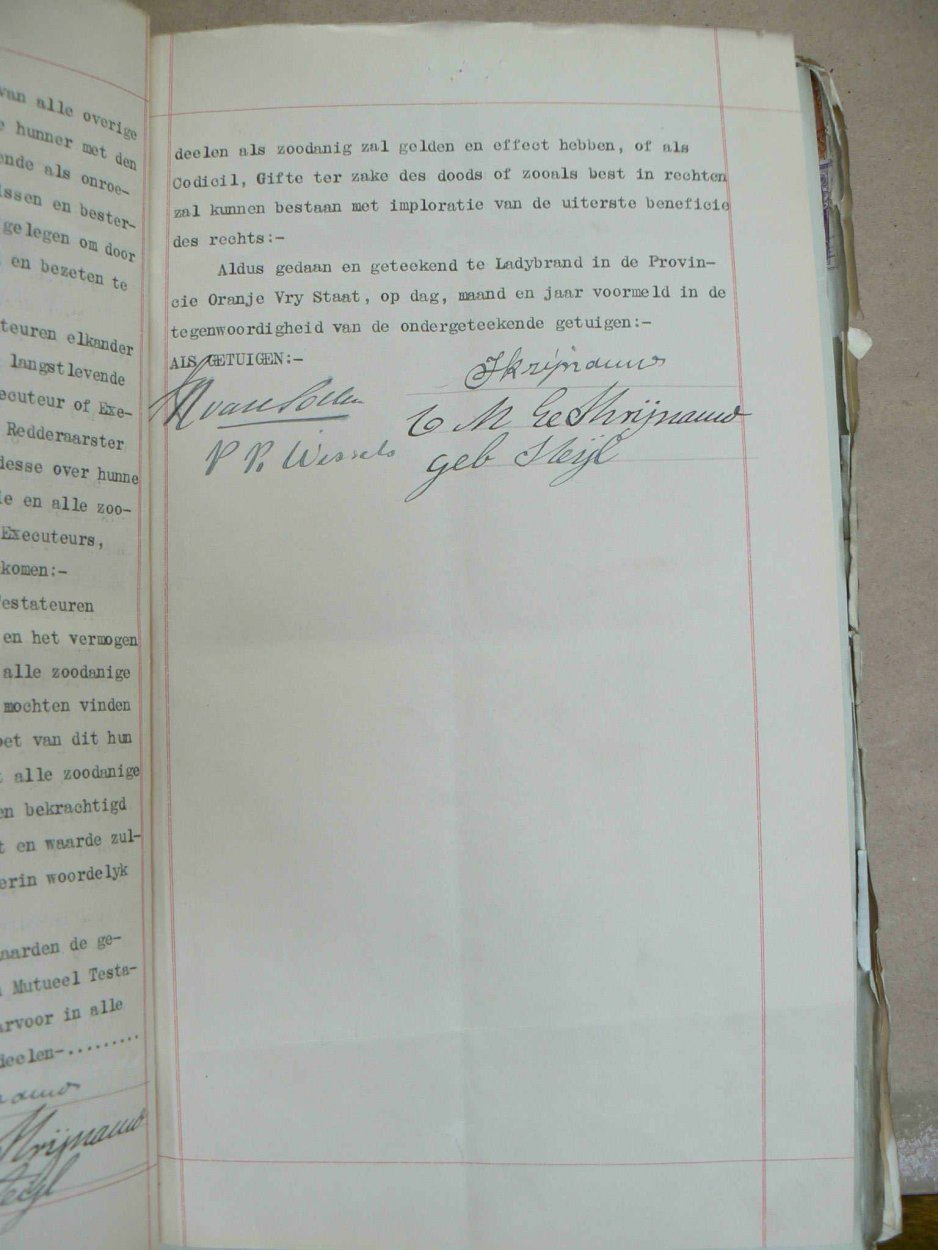 van alle overige
hunner met den
ende als onroe-
issen en bester-
gelegen om door
en bezeten te
teuren elkander
langstlevende
ecuteur of Exe-
Redderaarster
desse over hunne
ie en alle zoo-
Executeurs,
komen:-
Testateuren
en het vermogen
alle zoodanige
mochten vinden
oet van dit hun
t alle zoodanige
en bekrachtigd
t en waarde zul-
erin woordelyk
aarden de ge-
n Mutueel Testa-
arvoor in alle
deelen-.........
nauw
Krijnauw
teijl
deelen als zoodanig zal gelden en effect hebben, of als
Codicil, Gifte ter zake des doods of zooals best in rechten
zal kunnen bestaan met imploratie van de uiterste beneficie
des rechts:-
Aldus gedaan en geteekend te Ladybrand in de Provin-
cie Oranje Vry Staat, op dag, maand en jaar voormeld in de
tegenwoordigheid van de ondergeteekende getuigen:-
ALS GETUIGEN:-
van
P. P. Wessels
Krijnauw
M Krijnauw
geb Steijl